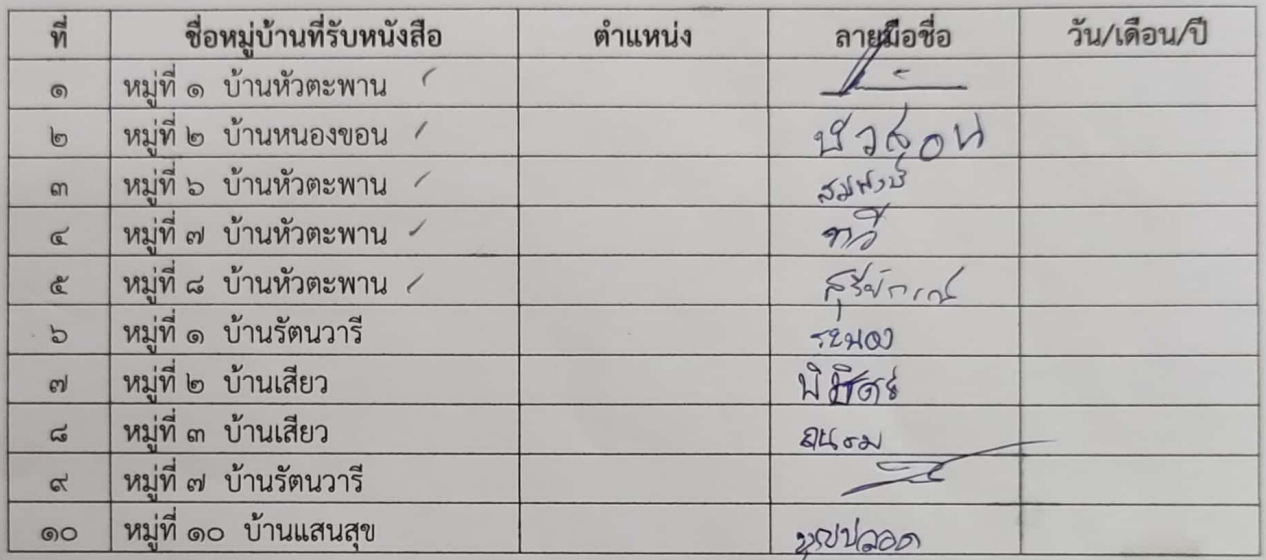 ที่ ชื่อหมู่บ้านที่รับหนังสือ ตำแหน่ง ลายมือชื่อ วัน/เดือน/ปี
๑ หมู่ที่ ๑ บ้านหัวตะพาน
๒ หมู่ที่ ๒ บ้านหนองขอน บัวสอน
๓ หมู่ที่ ๖ บ้านหัวตะพาน สมพงษ์
๔ หมู่ที่ ๗ บ้านหัวตะพาน ทวี
๕ หมู่ที่ ๘ บ้านหัวตะพาน
๖ หมู่ที่ ๑ บ้านรัตนวารี ระนอง
๗ หมู่ที่ ๒ บ้านเสียว
๘ หมู่ที่ ๓ บ้านเสียว
๙ หมู่ที่ ๗ บ้านรัตนวารี
๑๐ หมู่ที่ ๑๐ บ้านแสนสุข